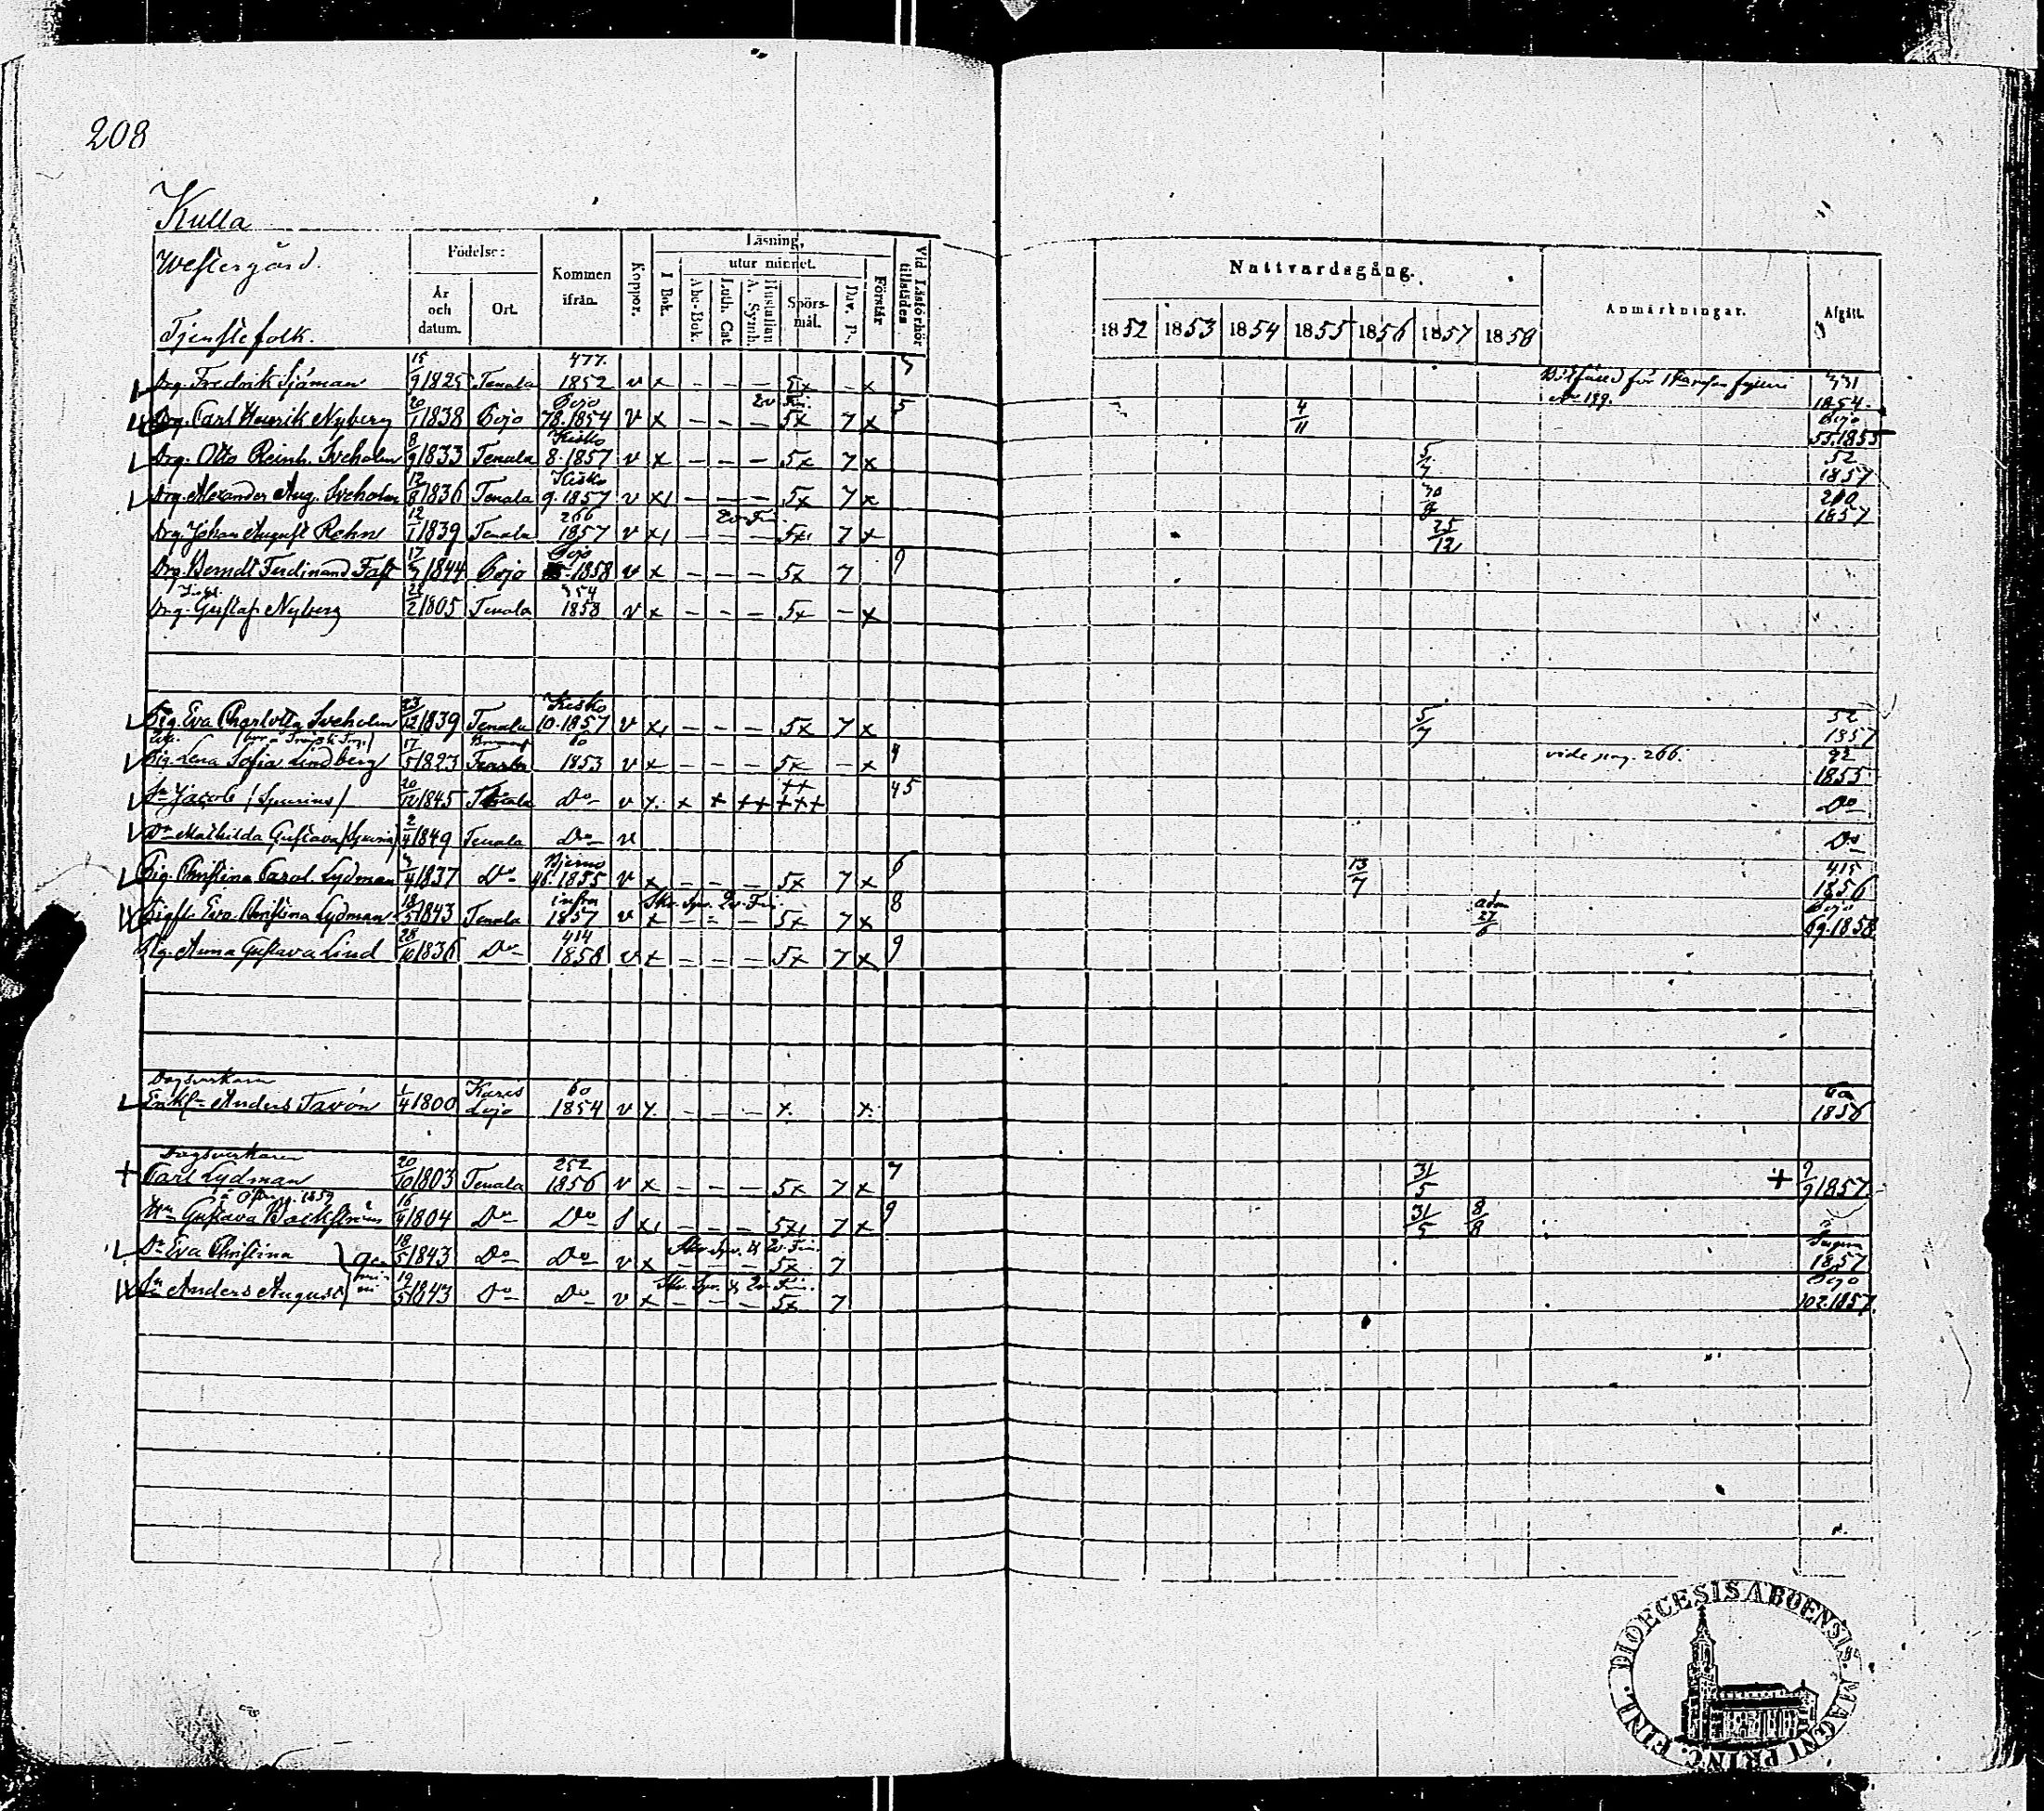 208
Kulla
Westergård.
Tjenstefolk.
Födelse:
År och datum.
Ort.
Kommen ifrån.
Koppor.
Läsning,
I Bok.
utur minnet.
Abc-Bok.
Luth. Cat.
Hustaflan A. Symb.
Spörs- mål.
Dav. Ps.
Förstår
Vid Läsförhör tillstädes
Nattvardsgång.
1852 1853 1854 1855 1856 1857 1858
Anmärkningar.
Afgått.
Drg. Fredrik Sjöman 15/9 1825 Tenala 477. 1852 v x - - - 5x - x N:o 199. 331 1854.
Drg. Carl Henrik Nyberg 20/1 1838 Pojo Pojo 78.1854 v x - - - 5x 7 x 5 4/11 Pojo 55.1855
Drg. Otto Reinh. Sveholm 8/9 1833 Tenala Kisko 8.1857 v x - - - 5x 7 x 5/7 52 1857
Drg. Alexander Aug. Sveholm 12/8 1836 Tenala Kisko 9.1857 v x - - - 5x 7 x 1857
Drg. Johan August Rehn 12/1 1839 Tenala 266 1857 v x - - - 5x 7 x 25/12
Drg. Berndt Ferdinand Fast 17/3 1844 Pojo Pojo 1858 v x - - - 5x 7 9
Drg. Gustaf Nyberg 28/2 1805 Tenala 354 1858 v x - - - 5x - x
Pig. Eva Charlotta Sveholm 23/12 1839 Tenala Kisko 10.1857 v x - - - 5x 7 x 5/7 52 1857
Pig. Lena Sofia Lindberg 17/5 1823 60 1853 v x - - - 5x - x 4 vide pag. 266. 92 1855
Sn Jacob /Spurius/ 20/12 1845 Tenala Do v x + + ++ +++ 45 Do
Dr Mathilda Gustava /Spuria/ 2/4 1849 Tenala Do v Do
Pig. Christina Carol. Lydman 3/4 1837 Do Bjerno 46.1855 v x - - - 5x 7 x 6 13/7 415 1856
Pigfl. Eva Christina Lydman 18/5 1843 Tenala infra 1857 v x - - - 5x 7 x 8 adm 27/6 Pojo 69.1858
Pig. Anna Gustava Lind 28/10 1836 Do 414 1858 v x - - - 5x 7 x 9
Dagsverkaren
Enkl. Anders Tavon 1/4 1800 Karis Lojo 60 1854 v x - - - x x 1856
Dagsverkaren
+ Carl Lydman 20/10 1803 Tenala 252 1856 v x - - - 5x 7 x 7 31/5 + 9/9 1857
Hn Gustava Backström 16/4 1804 Do Do S x - - - 5x 7 x 9 31/5 8/8
Dr Eva Christina 18/5 1843 Do Do v x - - - 5x 7 1857
Sn Anders August 19/5 1843 Do Do v x - - - 5x 7 Pojo 102.1857.
gemini
DIOECESIS ABOENSIS. MAGNI PRINC. FINL.